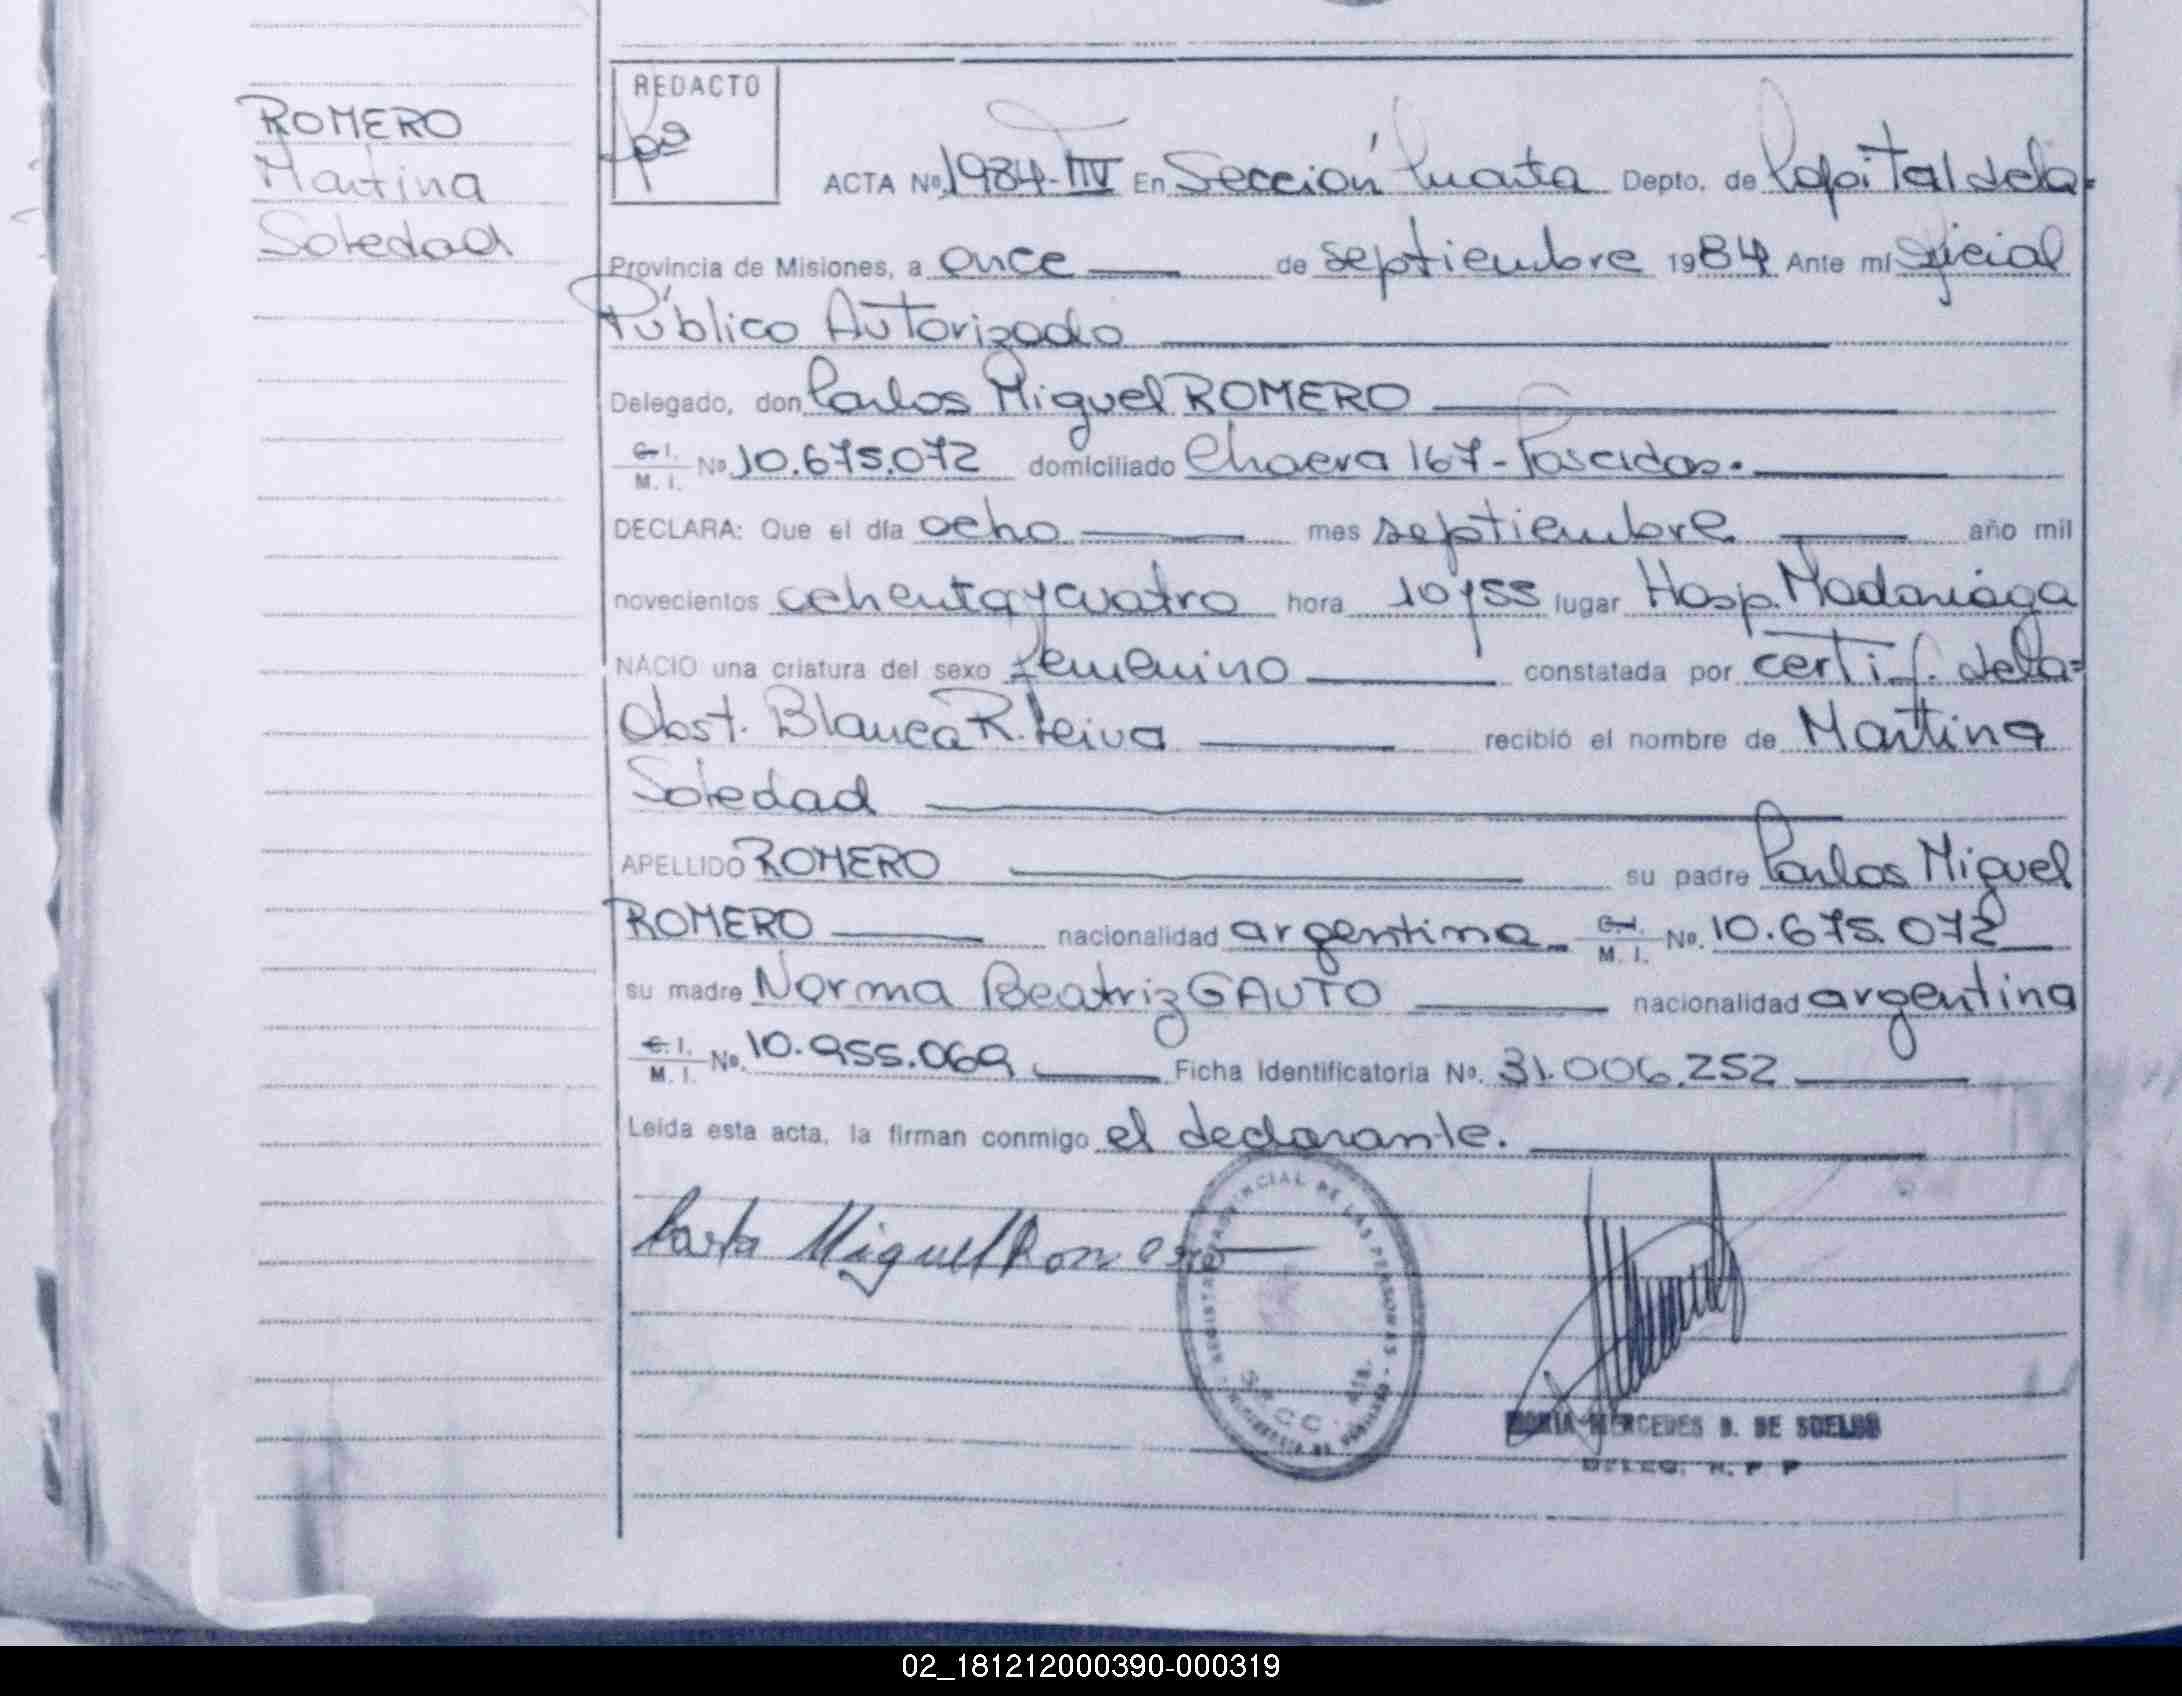 ROMERO
Martina
Soledad
REDACTO
pª
ACTA Nº 1984-TIV En Sección Cuarta Depto. de Capital de la=
Provincia de Misiones, a once de septiembre 1984 Ante mí Oficial
Público Autorizado
Delegado, don Carlos Miguel ROMERO
C.I.
M. I. Nº 10.675.072 domiciliado Chacra 167-Posadas.
DECLARA: Que el día ocho mes septiembre año mil
novecientos ochenta y cuatro hora 10 y 55 lugar Hosp. Madariaga
NACIO una criatura del sexo femenino constatada por certif. de la=
Obst. Blanca R. Leiva recibió el nombre de Martina
Soledad
APELLIDO ROMERO su padre Carlos Miguel
ROMERO nacionalidad argentina C.I. M. I. Nº. 10.675.072
su madre Norma Beatriz GAUTO nacionalidad argentina
C.I.
M. I. Nº. 10.955.069 Ficha Identificatoria Nº. 31.006.252
Leída esta acta, la firman conmigo el declarante.
Carlos Miguel Romero
REGISTRO PROVINCIAL DE LAS PERSONAS
SECC. 4ta.
MARIA MERCEDES D. DE SOELBS
DELEG. R. P P
02_181212000390-000319